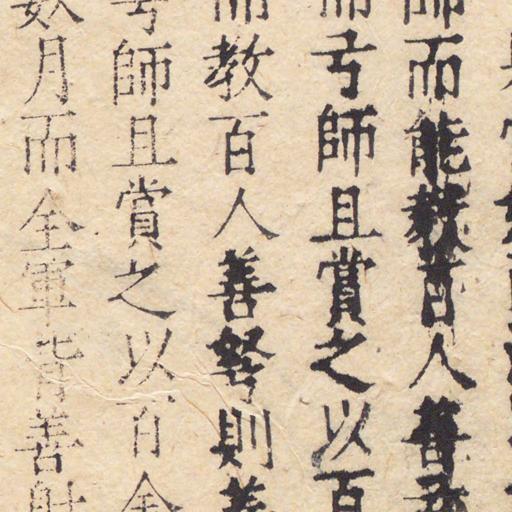 師而能教百人善
而弓師且賞之以百
而教百人善弩則善
弓師且賞之以百金
數月而全軍皆善射